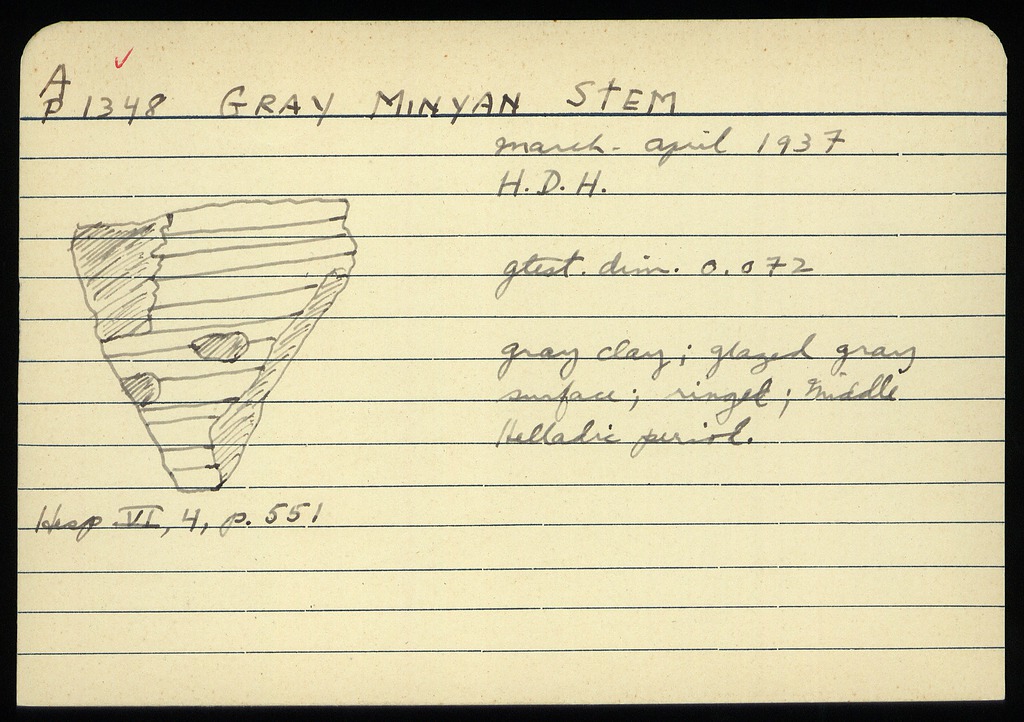 A
P 1348 GRAY MINYAN STEM
march - april 1937
H.D.H.
gtest. dim. 0.072
gray clay; glazed gray
surface; ringed; Middle
Helladic period.
Hesp VI, 4, p. 551